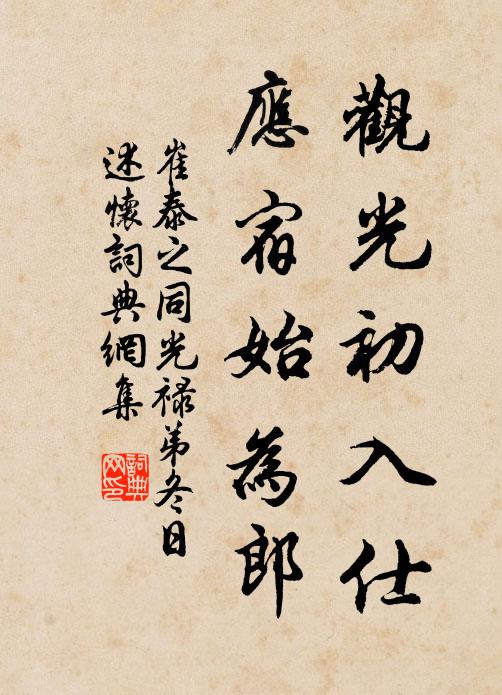 觀光初入仕
應宿始為郎
崔泰之同光祿弟冬日
述懷詞典網集
詞典
网印